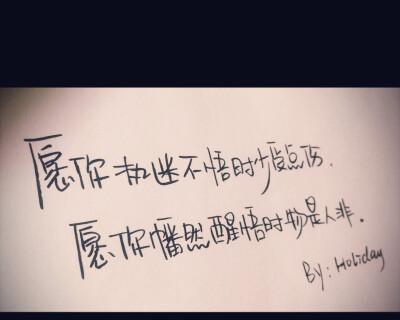 愿你执迷不悟时少受点伤.
愿你幡然醒悟时物是人非.
BY: Holiday